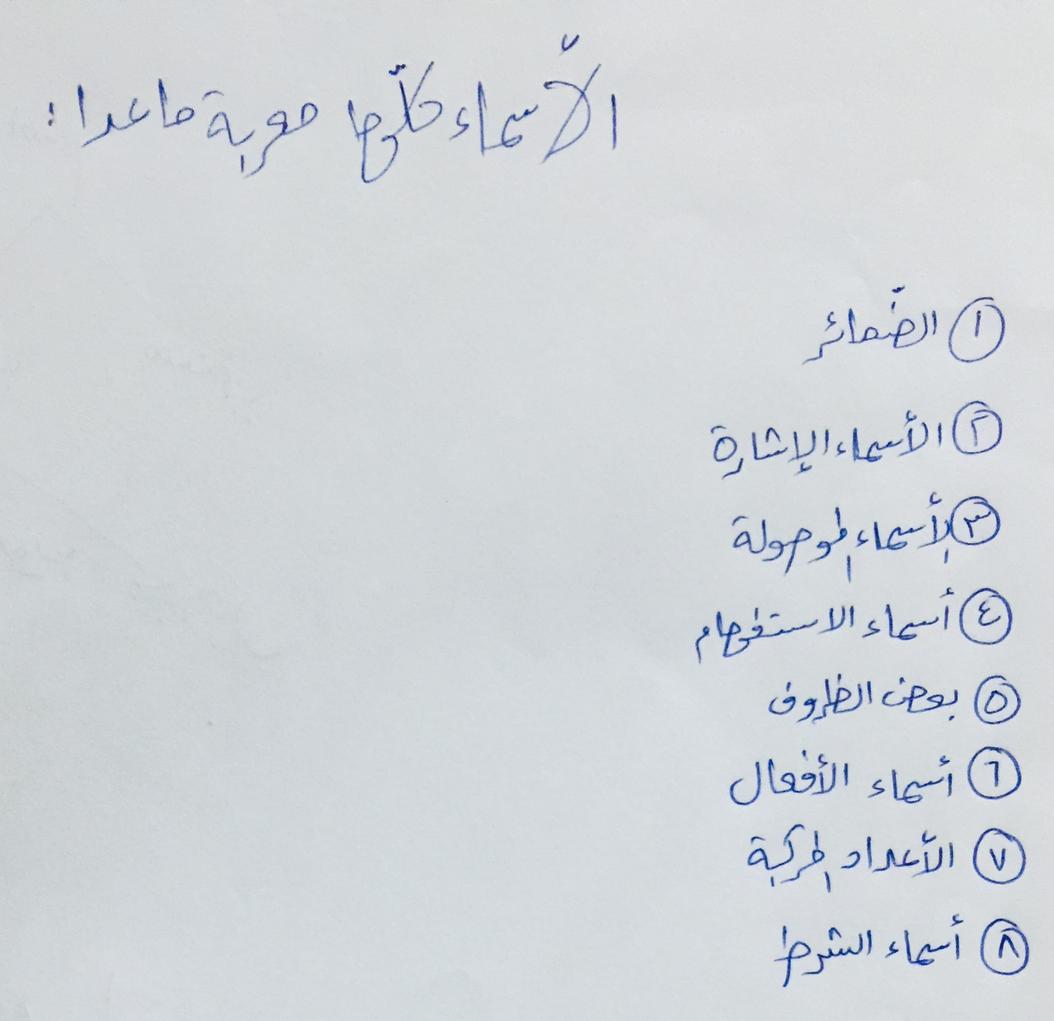 الأسماء كلّها معربة ماعدا:
١ الضّمائر
٢ الأسماء الإشارة
٣ الأسماء الموصولة
٤ أسماء الاستفهام
٥ بعض الظروف
٦ أسماء الأفعال
٧ الأعداد المركبة
٨ أسماء الشرط